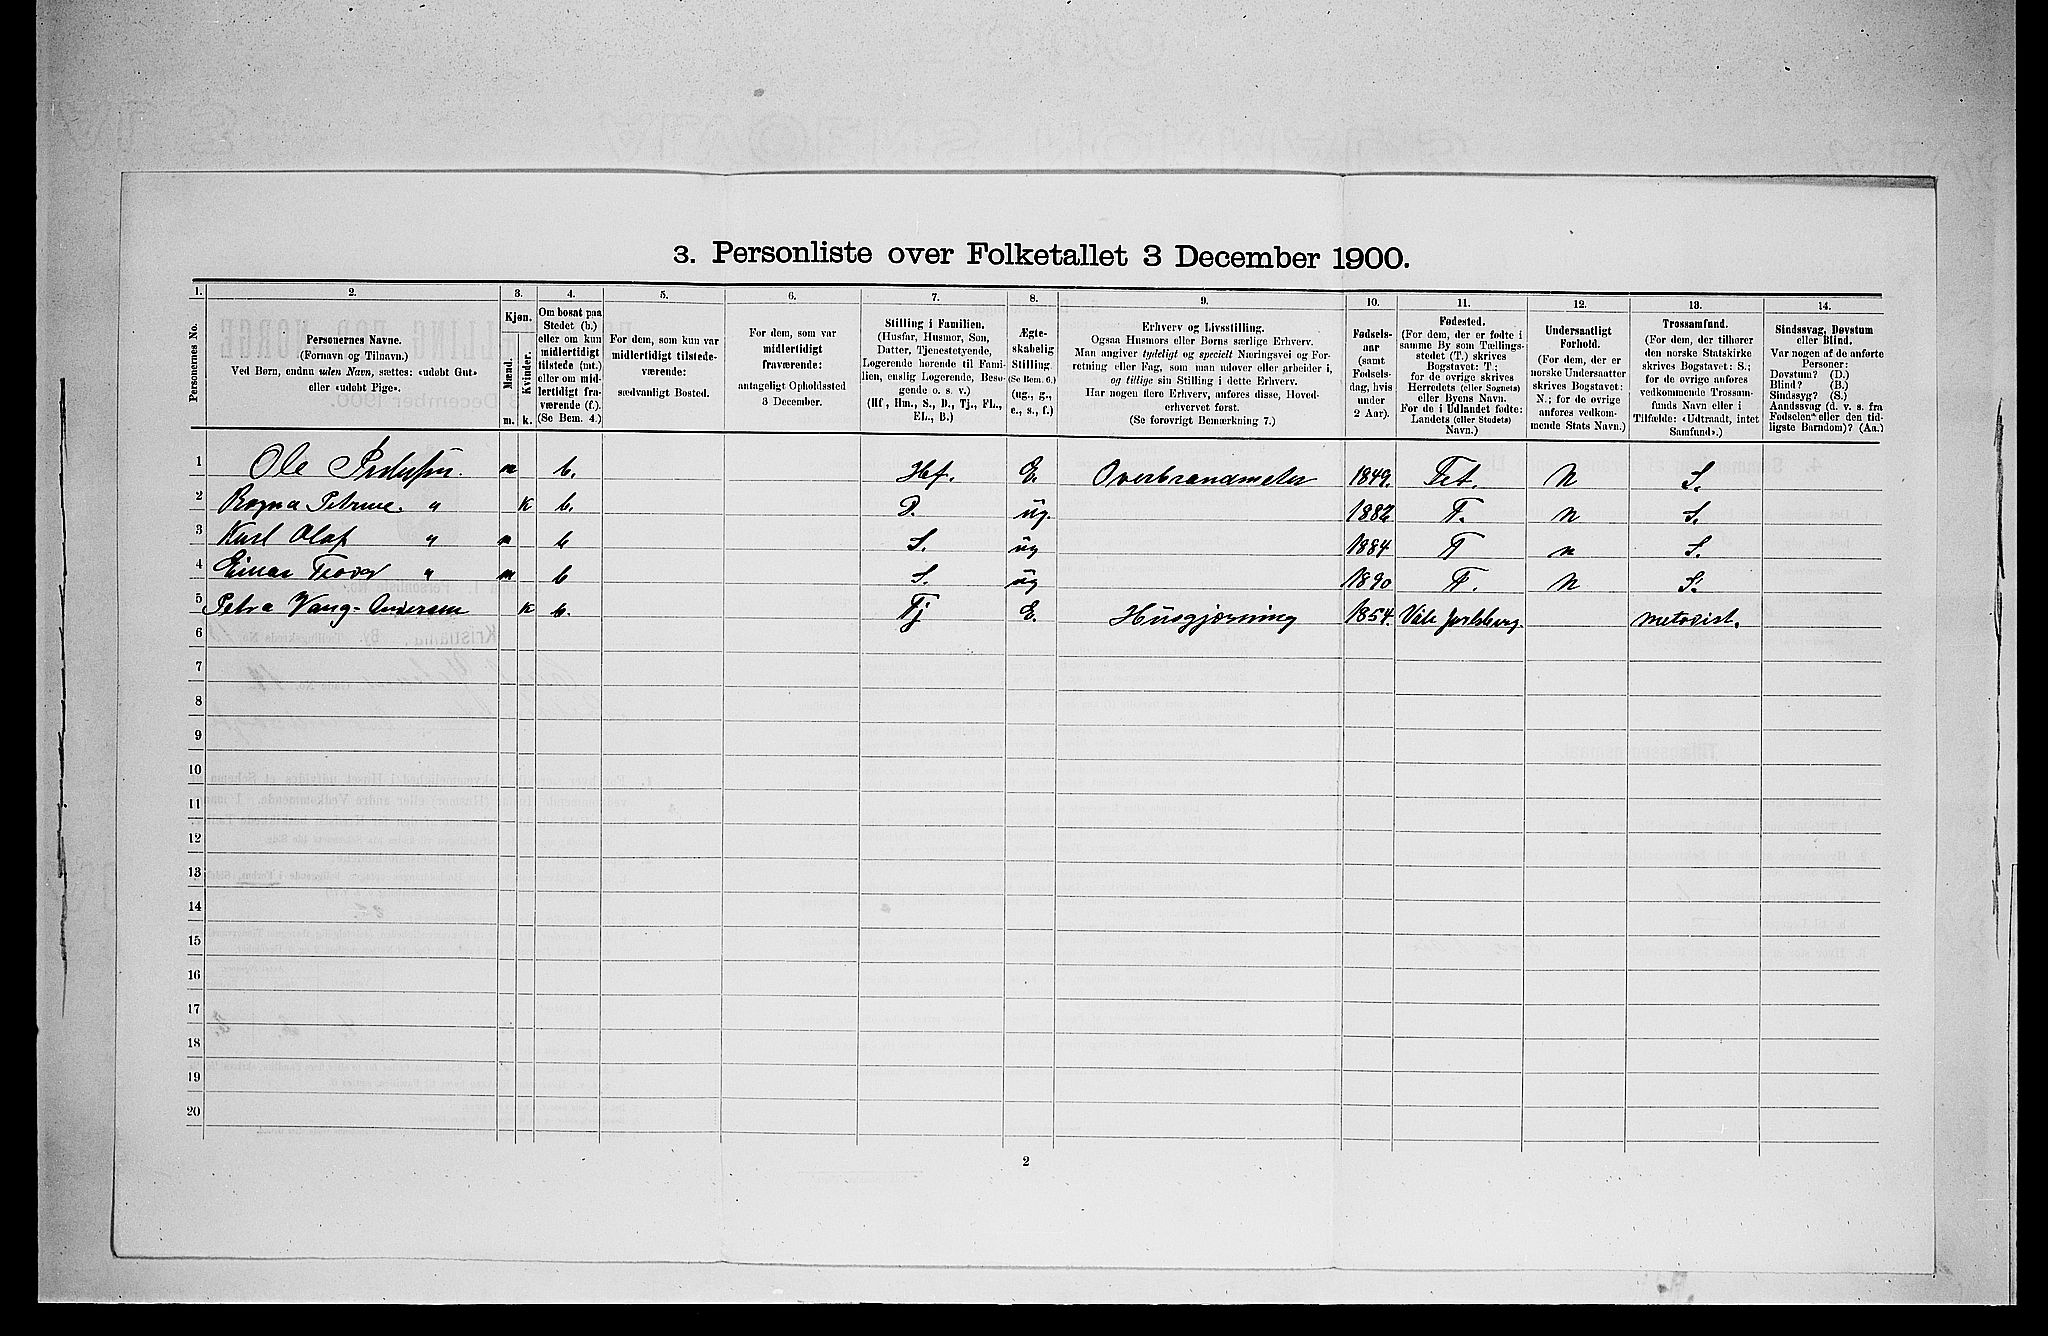 3. Personliste over Folketallet 3 December 1900.
1. 2. 3. 4. 5. 6. 7. 8. 9. 10. 11. 12. 13. 14.
Personernes No.
Personernes Navne.
(Fornavn og Tilnavn.)
Ved Børn, endnu uden Navn, sættes: «udøbt Gut»
eller «udøbt Pige».
Kjøn.
Mænd. Kvinder.
m. k.
Om bosat paa
Stedet (b.)
eller om kun
midlertidigt
tilstede (mt.)
eller om mid-
lertidigt fra-
værende (f.).
(Se Bem. 4.)
For dem, som kun var
midlertidigt tilstede-
værende:
sædvanligt Bosted.
For dem, som var
midlertidigt
fraværende:
antageligt Opholdssted
3 December.
Stilling i Familien.
(Husfar, Husmor, Søn,
Datter, Tjenestetyende,
Logerende hørende til Fami-
lien, enslig Logerende, Besø-
gende o. s. v.)
(Hf, Hm., S., D., Tj., FL.,
EL., B.)
Ægte-
skabelig
Stilling.
(Se Bem. 6.)
(ug., g.,
e., s., f.)
Erhverv og Livsstilling.
Ogsaa Husmors eller Børns særlige Erhverv.
Man angiver tydeligt og specielt Næringsvei og For-
retning eller Fag, som man udøver eller arbeider i,
og tillige sin Stilling i dette Erhverv.
Har nogen flere Erhverv, anføres disse, Hoved-
erhvervet først.
(Se forøvrigt Bemærkning 7.)
Fødsels-
aar
(samt
Fødsels-
dag, hvis
under
2 Aar).
Fødested.
(For dem, der er fødte i
samme By som Tællings-
stedet (T.) skrives
Bogstavet: T;
for de øvrige skrives
Herredets (eller Sognets)
eller Byens Navn.
For de i Udlandet fødte:
Landets (eller Stedets)
Navn.)
Undersaatligt
Forhold.
(For dem, der er
norske Undersaatter
skrives Bogstavet:
N.; for de øvrige
anføres vedkom-
mende Stats Navn.)
Trossamfund.
(For dem, der tilhører
den norske Statskirke
skrives Bogstavet: S.;
for de øvrige anføres
vedkommende Trossam-
funds Navn eller i
Tilfælde: «Udtraadt, intet
Samfund».)
Sindssvag, Døvstum
eller Blind.
Var nogen af de anførte
Personer:
Døvstum? (D.)
Blind? (B.)
Sindssyg? (S.)
Aandssvag (d. v. s. fra
Fødselen eller den tid-
ligste Barndom)? (Aa.)
1 Ole Pedersen. m b. Hf. E. Overbrandmester 1849. Fet. N S.
2 Ragna Petrine. " k b. D. ug. 1882 T. N S.
3 Karl Olaf " m b S. ug 1884 T n S.
4 Einar " m b S. ug 1890 T. N S.
5 Petra Vang-Andersen k b. Tj E. Husgjerning 1854. Jarlsberg. Metodist.
6
7
8
9
10
11
12
13
14
15
16
17
18
19
20
2